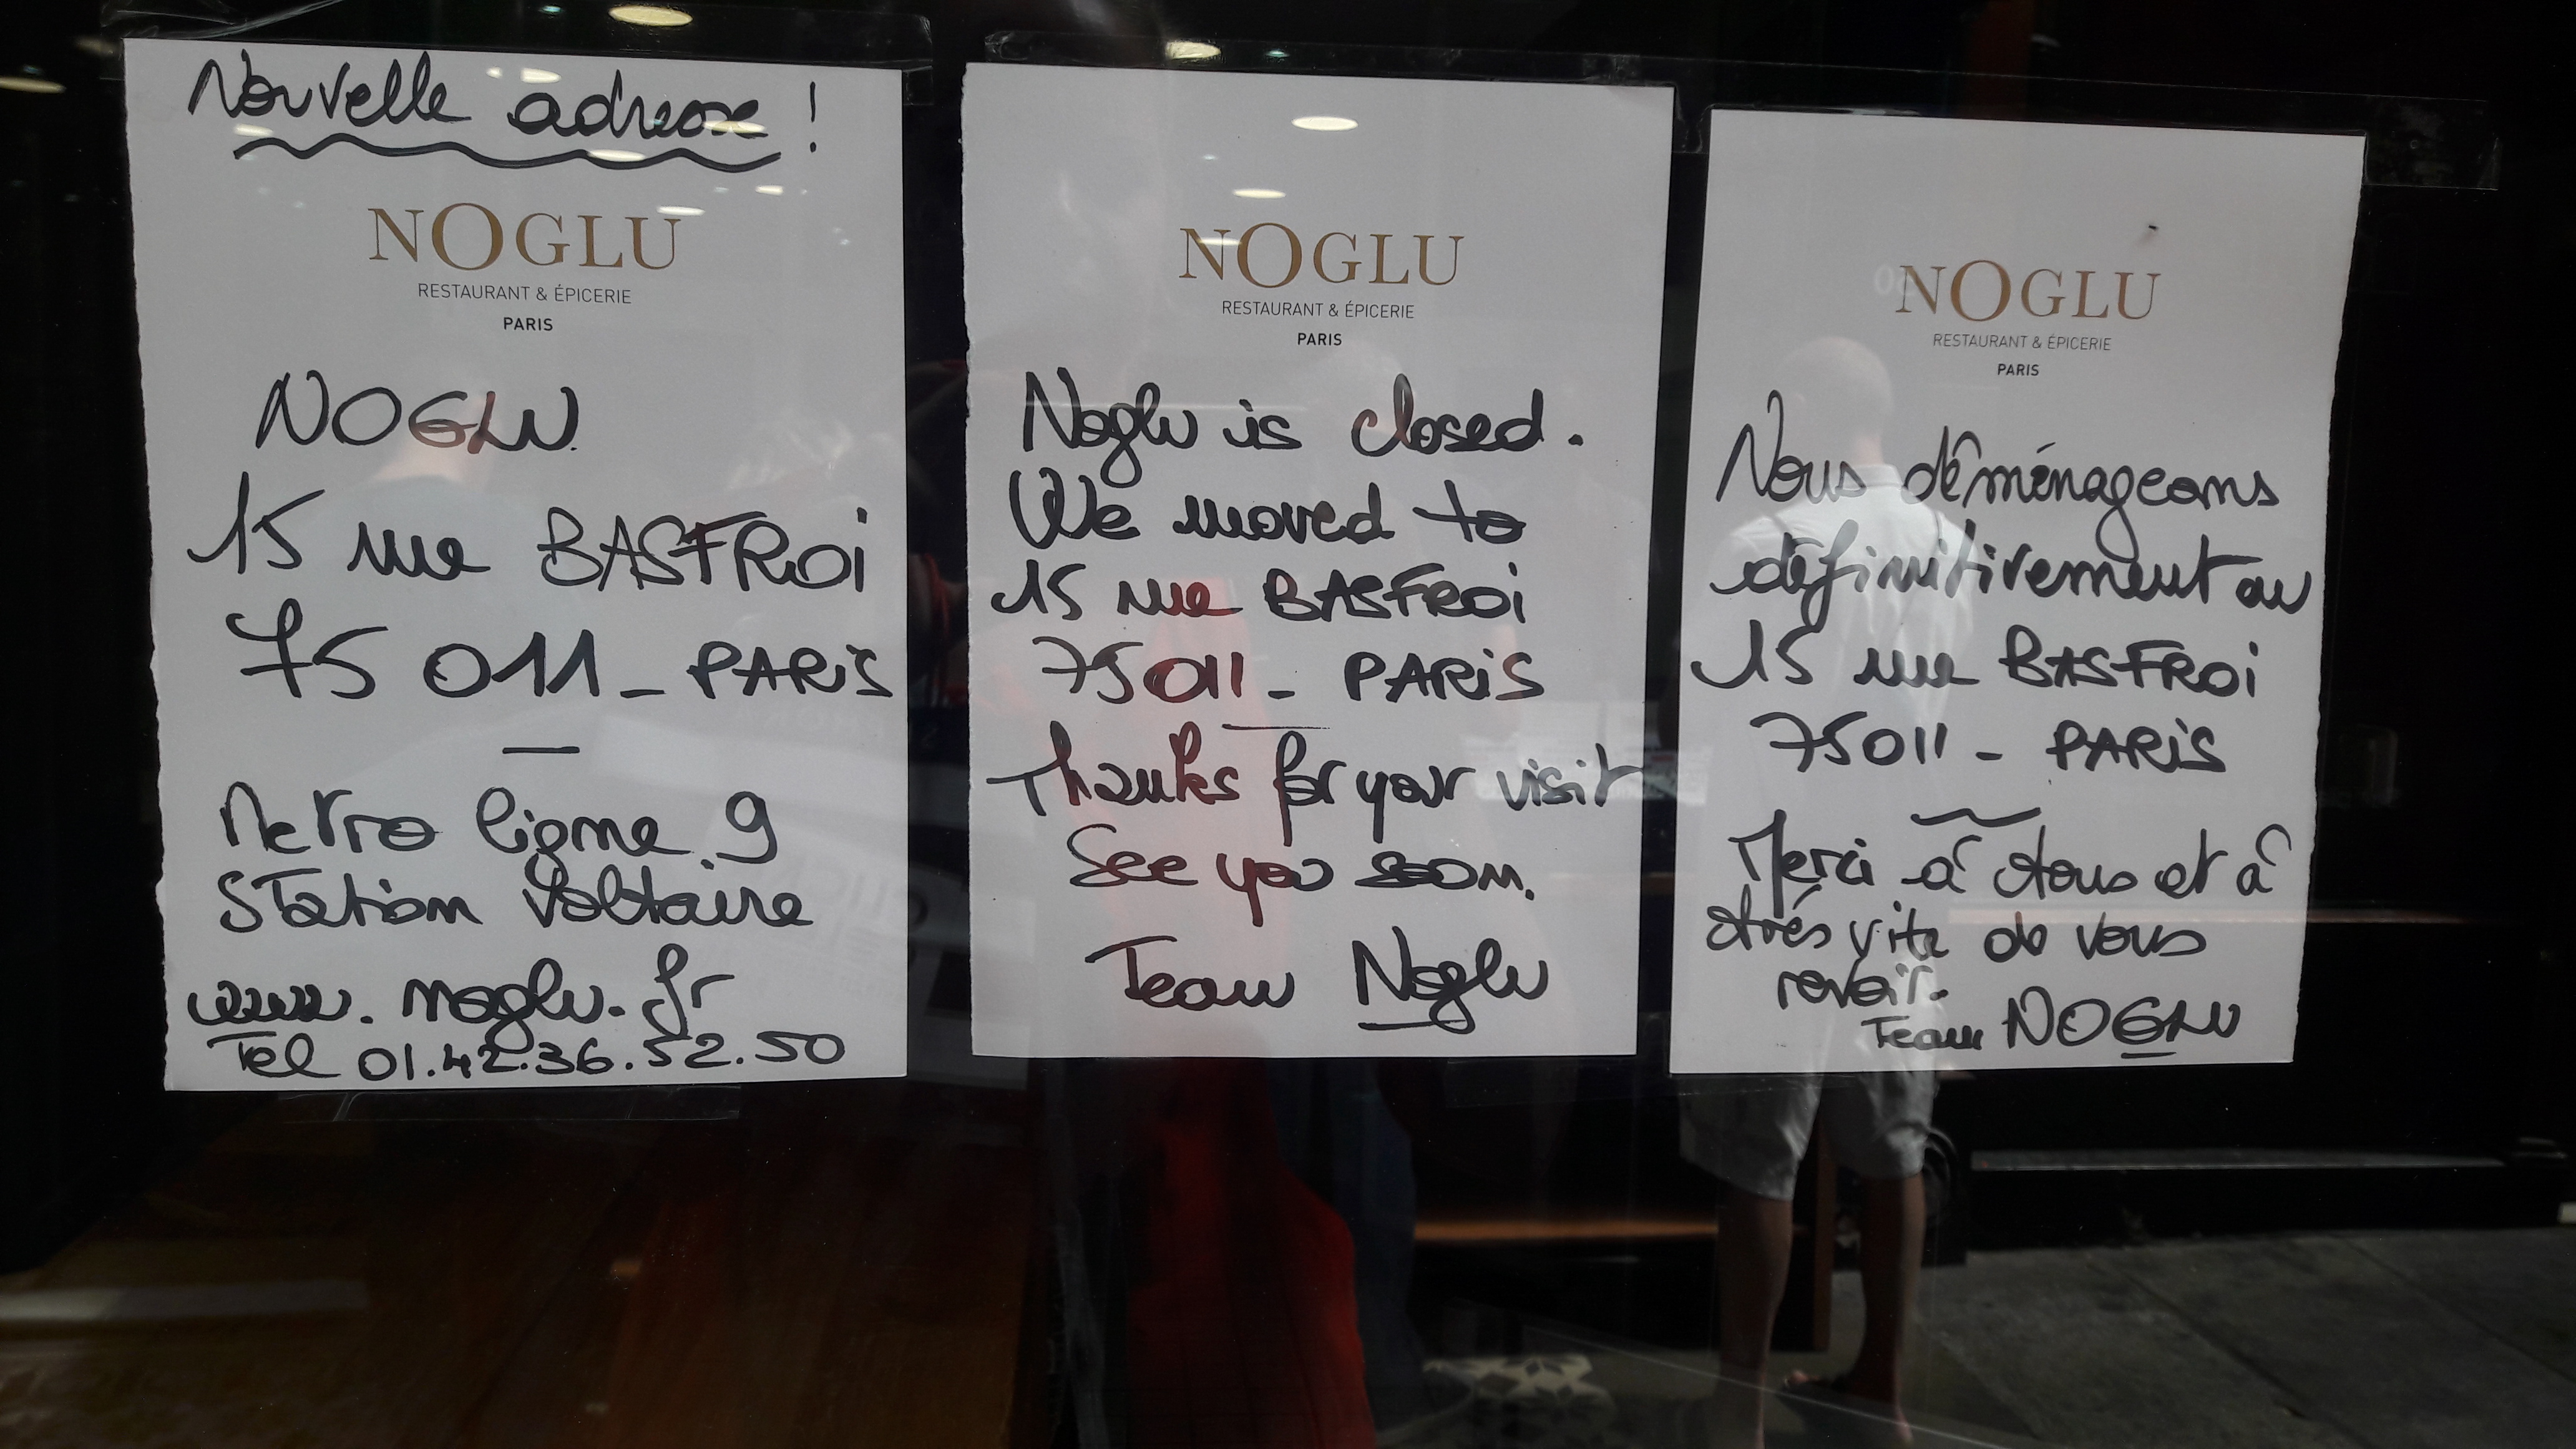 Nouvelle adresse !
NOGLU
RESTAURANT & ÉPICERIE
PARIS
NOGLU
15 rue BASFROi
75 011 - PARiS
Metro ligne 9
Station Voltaire
www.noglu.fr
Tel 01.42.36.52.50
NOGLU
RESTAURANT & ÉPICERIE
PARIS
Noglu is closed.
We moved to
15 rue BASFROi
75011 - PARiS
Thanks for your visit
See you soon.
Team Noglu
NOGLU
RESTAURANT & ÉPICERIE
PARIS
Nous déménageons
définitivement au
15 rue BASFROi
75011 - PARiS
Merci à tous et à
très vite de vous
revoir.
Team NOGLU